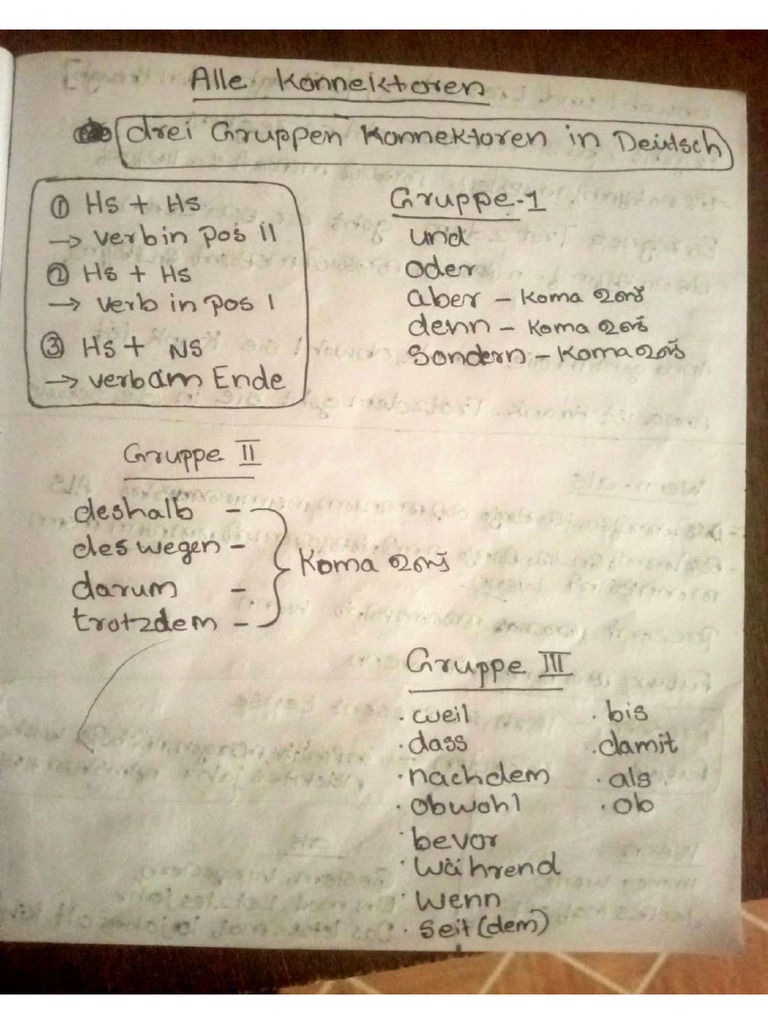 Alle Konnektoren
drei Gruppen Konnektoren in Deutsch
① Hs + Hs
→ verb in pos II
② Hs + Hs
→ verb in pos I
③ Hs + NS
→ verb am Ende
Gruppe-1
und
oder
aber - Koma ഉണ്ട്
denn - Koma ഉണ്ട്
sondern - Koma ഉണ്ട്
Gruppe II
deshalb -
deswegen -
darum -
trotzdem -
Koma ഉണ്ട്
Gruppe III
· weil
· dass
· nachdem
· obwohl
· bevor
· während
· wenn
· seit (dem)
· bis
· damit
· als
· ob